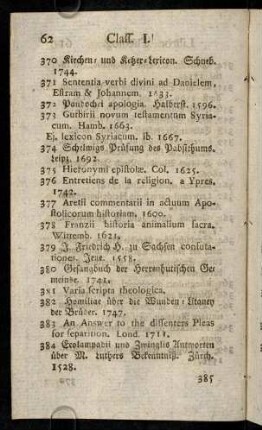 62 Class. I.
370 Kirchen- und Ketzer-Lexicon. Schneb.
1744.
371 Sententia verbi divini ad Danielem,
Esram & Johannem. 1533.
372 Pandocheï apologia. Halberst. 1596.
373 Gutbirii novum testamentum Syria-
cum. Hamb. 1663.
Ej. lexicon Syriacum. ib. 1667.
374 Prüfung des Pabsthums.
Leipz. 1692.
375 Hieronymi epistolæ. Col. 1625.
376 Entretiens de la religion. a Ypres.
1742.
377 Aretii commentarii in actuum Apo-
stolicorum historiam, 1600.
378 Franzii historia animalium sacra.
Wittemb. 1621.
379 J. Friedrich H. zu Sachsen confuta-
tiones. Jene. 1558.
380 Gesangbuch der Herrenhutischen Ge-
meinde. 1741.
381 Varia scripta theologica.
382 Homiliae über die Wunden-Litaney
der Brüder. 1747.
383 An Answer to the dissenters Pleas
for separition. Lond. 1711.
384 Ecolampadii und Zwinglis Antworten
über M. Luthers Bekenntniß. Zürch.
1528.
385